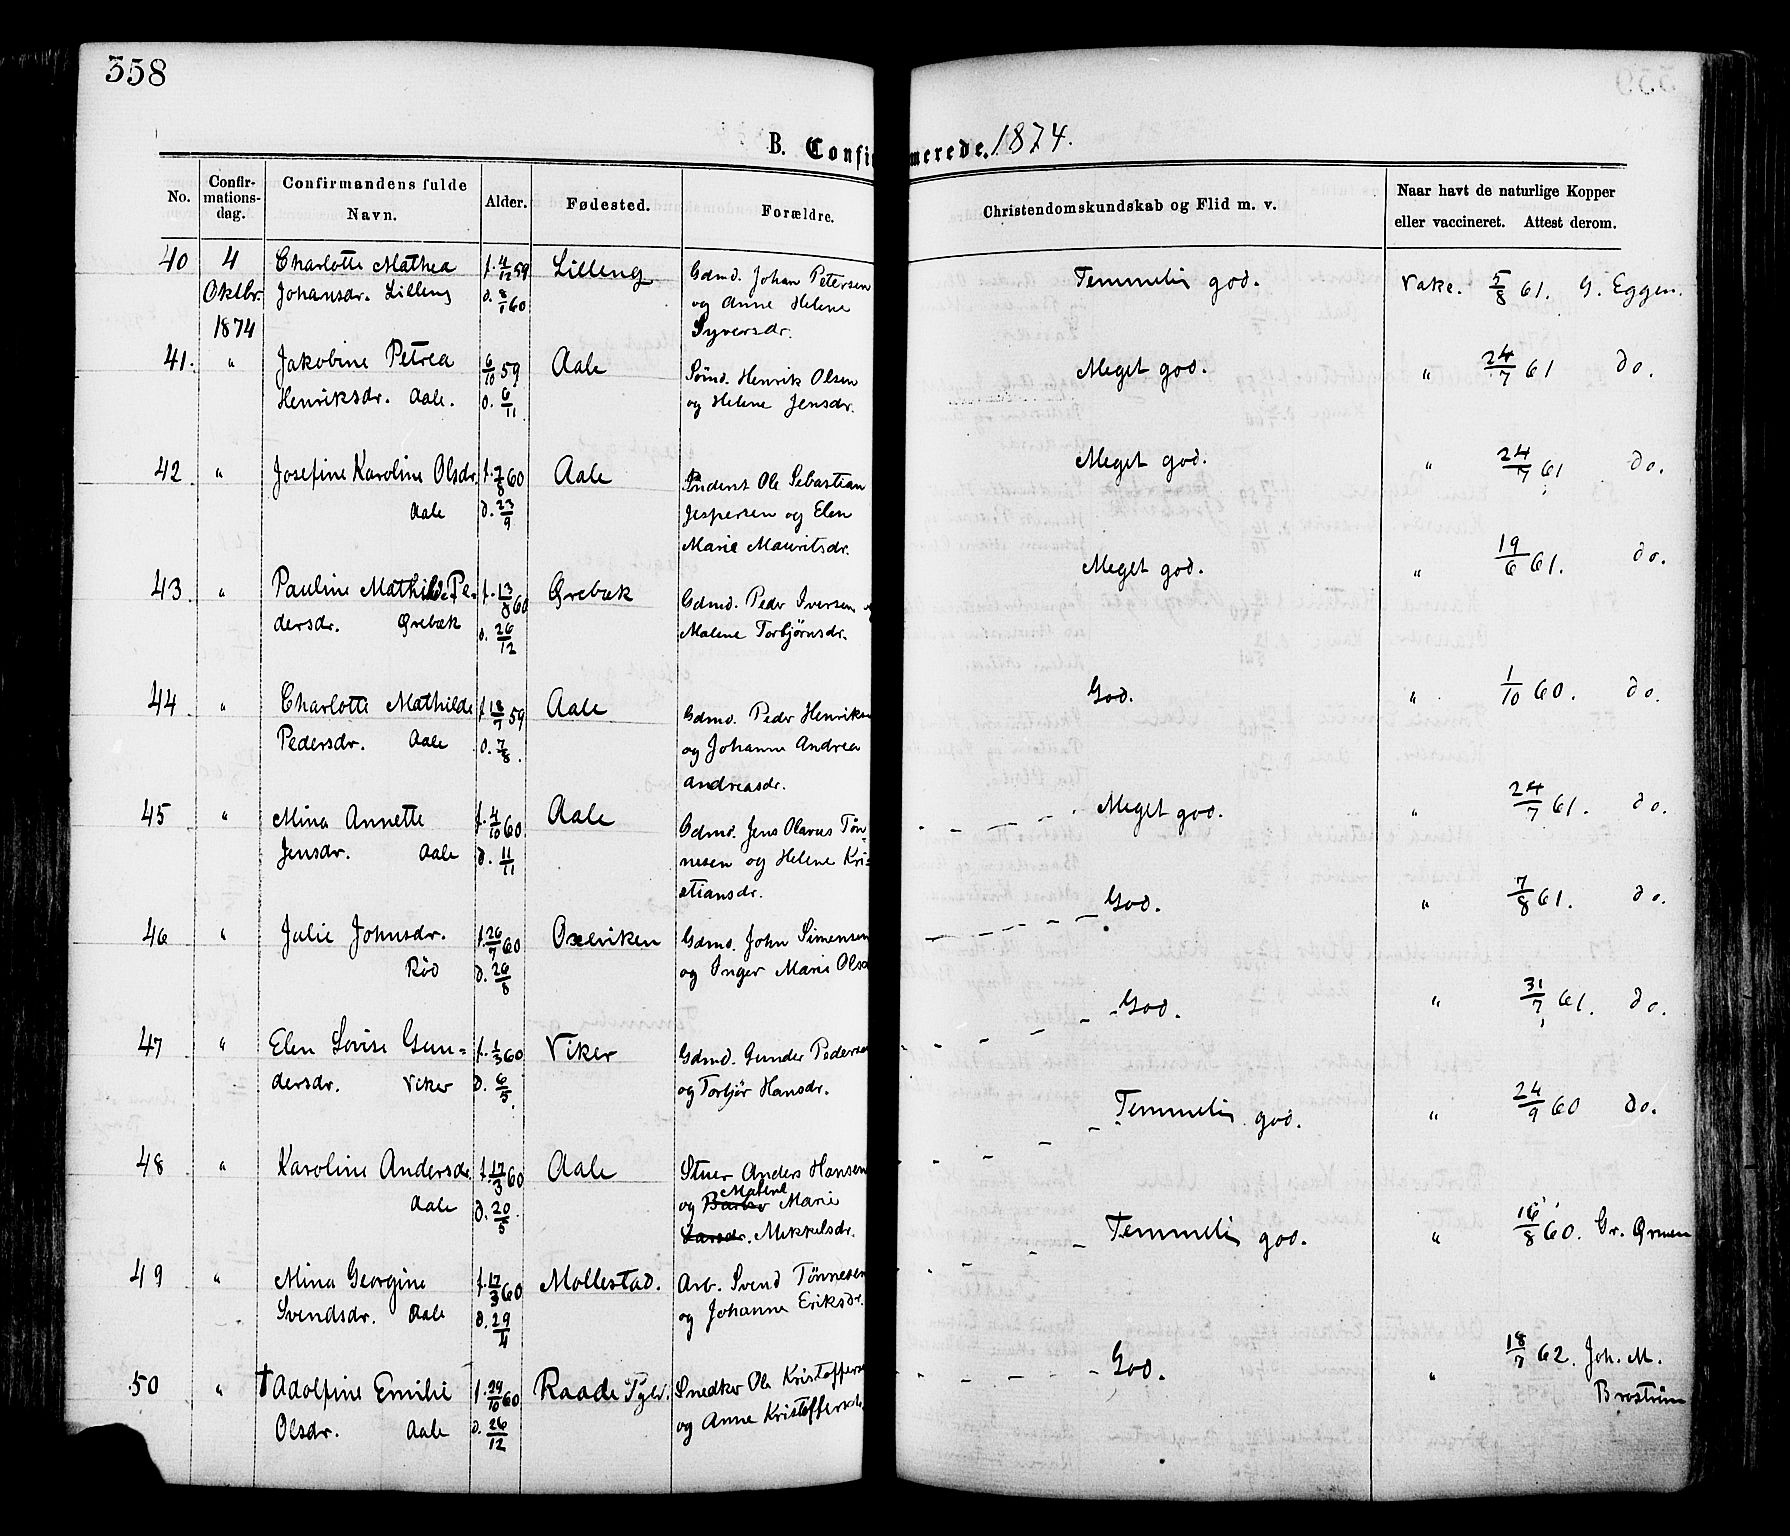 358
B. Confirmerede. 1874.
No. Confirmationsdag. Confirmandens fulde Navn. Alder. Fødested. Forældre. Christendomskundskab og Flid m. v. Naar havt de naturlige Kopper eller vaccineret. Attest derom.
40 4 Charlotte Mathea f. 4/12 59 Lilleng Gdmd. Johan Petersen Temmelig god. Vakc. 5/8 61. G. Eggen.
Oktbr. Johansdr. Lilleng d. 8/1 60 og Anne Helene
1874 Syversdr.
41. " Jakobine Petrea 6/10 59 Aale Sømd. Henrik Olsen Meget god. " 24/7 61 do.
Henriksdr. Aale. d. 6/11 og Helene Jensdr.
42 " Josefine Karoline Olsdr. f. 2/8 60 Aale Inderst Ole Sebastian Meget god. " 24/7 61 do.
Aale d. 23/9 Jespersen og Elen
Marie Mauritsdr.
43 " Pauline Mathilde Pe- f. 13/8 60 Ørebæk Gdmd. Peder Iversen og Meget god. " 19/6 61. do.
dersdr. Ørebæk d. 26/12 Malene Torbjørnsdr.
44 " Charlotte Mathilde f. 18/7 59 Aale Gdmd. Peder Henriksen God. " 1/10 60. do.
Pedersdr. Aale d. 7/8 og Johanne Andrea
Andreasdr.
45 " Mina Annette f. 4/10 60 Aale Gdmd. Jens Olavus Tøn- Meget god. " 24/7 61. do.
Jensdr. Aale d. 11/11 nesen og Helene Kri-
stiansdr.
46 " Julie Johnsdr. f. 26/7 60 Oxeviken Gdmd. John Simensen God. " 7/8 61. do.
Rød d. 26/8 og Inger Marie Olsd
47 " Elen Lovise Gun- f. 1/3 60 Viker Gdmd. Gunder Pedersen God. " 31/7 61. do.
dersdr. Viker d. 6/5 og Torbjør Hansdr.
48 " Karoline Andersdr. f. 17/3 60 Aale Stuer Anders Hansen Temmelig god. " 24/9 60 do.
Aale d. 20/5 og Malene Marie
Larsdr. Mikkelsdr.
49 " Mina Georgine f. 17/3 60 Mollestad. Arb. Svend Tønnesen Temmelig god. " 16/8 60. Gr. Ørmen
Svendsdr. Aale d. 29/4 og Johanne Eriksdr.
50 " † Adolfine Emilie f. 29/10 60 Raade Pgld. Snedker Ole Kristoffersen God. " 18/7 62. Joh. M.
Olsdr. Aale d. 26/12 og Anne Kristoffersdr. Broström